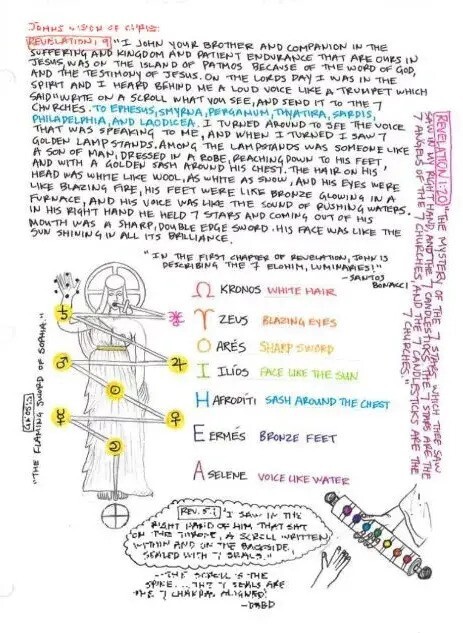 JOHNS VISION OF CHRIST:
REVELATION 1:9 "I JOHN YOUR BROTHER AND COMPANION IN THE
SUFFERING AND KINGDOM AND PATIENT ENDURANCE THAT ARE OURS IN
JESUS, WAS ON THE ISLAND OF PATMOS BECAUSE OF THE WORD OF GOD,
AND THE TESTIMONY OF JESUS. ON THE LORDS DAY I WAS IN THE
SPIRIT AND I HEARD BEHIND ME A LOUD VOICE LIKE A TRUMPET WHICH
SAID "WRITE ON A SCROLL WHAT YOU SEE, AND SEND IT TO THE 7
CHURCHES. TO EPHESUS, SMYRNA, PERGANUM, THYATIRA, SARDIS,
PHILADELPHIA, AND LAODICEA. I TURNED AROUND TO SEE THE VOICE
THAT WAS SPEAKING TO ME, AND WHEN I TURNED I SAW 7
GOLDEN LAMP STANDS. AMONG THE LAMPSTANDS WAS SOMEONE LIKE
A SON OF MAN, DRESSED IN A ROBE, REACHING DOWN TO HIS FEET
AND WITH A GOLDEN SASH AROUND HIS CHEST. THE HAIR ON HIS
HEAD WAS WHITE LIKE WOOL, AS WHITE AS SNOW, AND HIS EYES WERE
LIKE BLAZING FIRE, HIS FEET WERE LIKE BRONZE GLOWING IN A
FURNACE, AND HIS VOICE WAS LIKE THE SOUND OF RUSHING WATERS.
IN HIS RIGHT HAND HE HELD 7 STARS AND COMING OUT OF HIS
MOUTH WAS A SHARP, DOUBLE EDGE SWORD. HIS FACE WAS LIKE THE
SUN SHINING IN ALL ITS BRILLIANCE.
REVELATION 1:20 "THE MYSTERY OF THE 7 STARS WHICH THEE SAW
SAW IN MY RIGHT HAND, AND THE 7 CANDLESTICKS. THE 7 STARS ARE THE
7 ANGELS OF THE 7 CHURCHES AND THE 7 CANDLESTICKS ARE THE
7 CHURCHES."
"IN THE FIRST CHAPTER OF REVELATION, JOHN IS
DESCRIBING THE 7 ELOHIM, LUMINARIES!"
-SANTOS
BONACCI
Ω KRONOS WHITE HAIR
♈ ZEUS BLAZING EYES
O ARÉS SHARP SWORD
I ILÍOS FACE LIKE THE SUN
H HAFRODÍTI SASH AROUND THE CHEST
E ERMÉS BRONZE FEET
A ASELENE VOICE LIKE WATER
♄
♃
♂
☉
☿
♀
"THE FLAMING SWORD OF SOPHIA"
REV. 5:1 "I SAW IN THE
RIGHT HAND OF HIM THAT SAT
ON THE THRONE, A SCROLL WRITTEN
WITHIN AND ON THE BACKSIDE,
SEALED WITH 7 SEALS."
"...THE SCROLL IS THE
SPINE... THE 7 SEALS ARE
THE 7 CHAKRAS ALIGNED!"